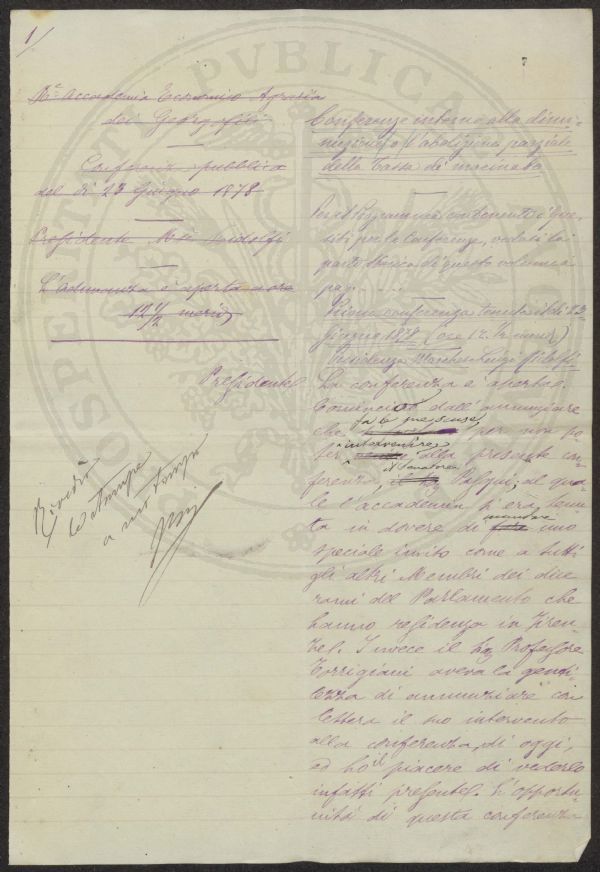 1/
7
R.ª Accademia Economico Agraria
dei Georgofili
Conferenza pubblica
del dì 23 Giugno 1878
Presidente M.se Ridolfi
L'adunanza è aperta a ore
12 1/2 merid
Presidente.
Rividi
le stampe
a mio tempo
Conferenze intorno alla dimi-
nuzione o l'abolizione parziale
della Tassa di macinato
Per il Programma contenente i que-
siti per le Conferenze, vedasi la
parte storica di questo volume a
pag. . . . .
Prima conferenza tenuta il dì 23
Giugno 1878 (ore 12 1/2 merid)
Presidenza Marchese Luigi Ridolfi
La conferenza è aperta.
Comincio dall'annunziare
che fa le sue scuse per non po-
ter intervenire alla presente con-
ferenza, il Senatore Pasqui, al qua-
le l'accademia s'era tenu-
ta in dovere di mandare uno
speciale invito come a tutti
gli altri Membri dei due
rami del Parlamento che
hanno residenza in Firen-
ze. Invece il Professore
Torrigiani aveva la genti-
lezza di annunziare con
lettera il suo intervento
alla conferenza di oggi,
ed ho il piacere di vederlo
infatti presente. L'opportu-
nità di questa conferenza